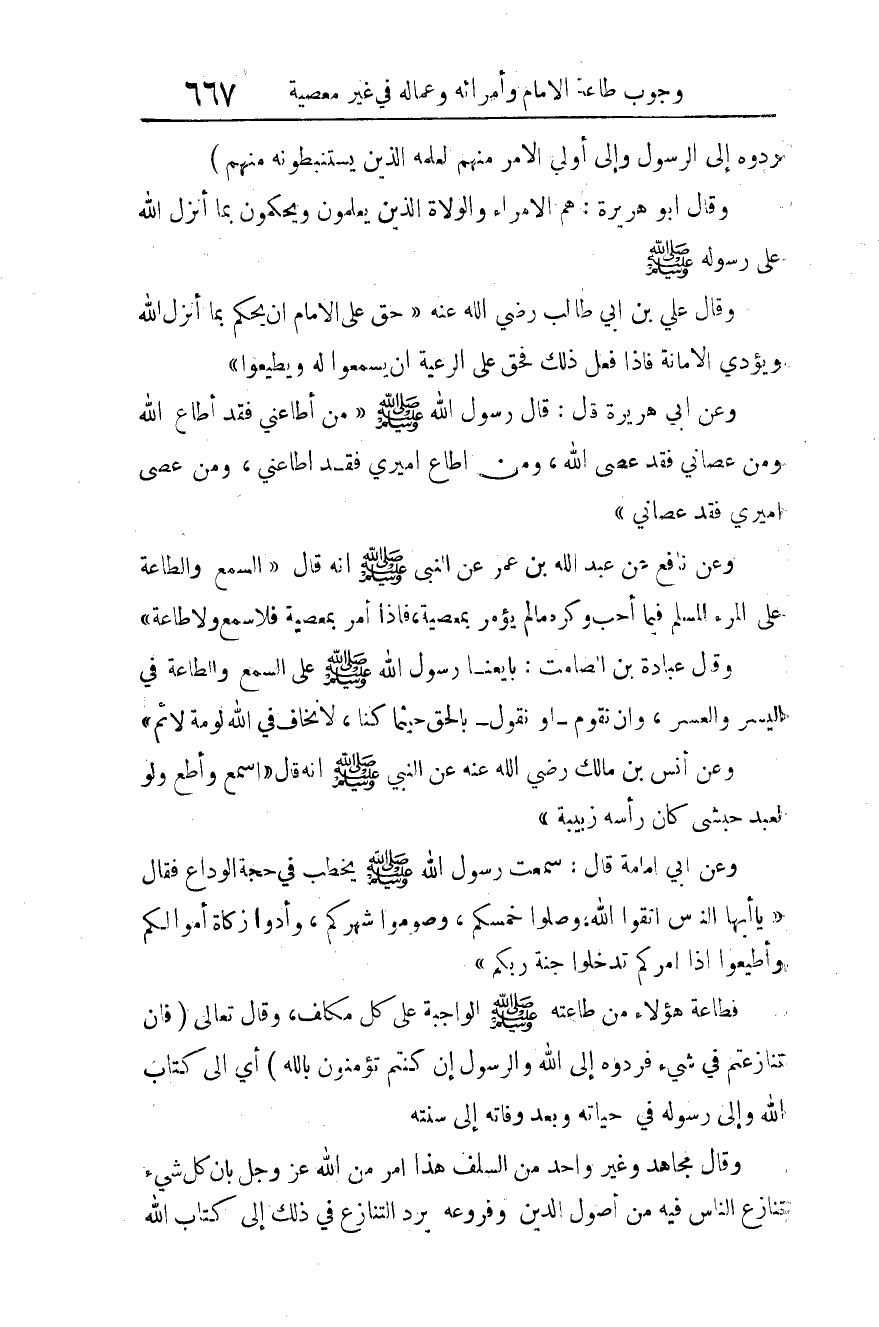 وجوب طاعة الامام وأمرائه وعماله في غير معصية ٦٦٧
ردوه إلى الرسول وإلى أولي الامر منهم لعلمه الذين يستنبطونه منهم )
وقال ابو هريرة : هم الامراء والولاة الذين يعلمون ويحكمون بما أنزل الله
على رسوله ﷺ
وقال علي بن ابي طالب رضي الله عنه « حق على الامام ان يحكم بما أنزل الله
ويؤدي الامانة فاذا فعل ذلك فحق على الرعية ان يسمعوا له ويطيعوا»
وعن ابي هريرة قال : قال رسول الله ﷺ « من أطاعني فقد أطاع الله
ومن عصاني فقد عصى الله ، ومن اطاع اميري فقد اطاعني ، ومن عصى
اميري فقد عصاني »
وعن نافع عن عبد الله بن عمر عن النبي ﷺ انه قال « السمع والطاعة
على المرء المسلم فيما أحب وكره مالم يؤمر بمعصية، فاذا أمر بمعصية فلا سمع ولا طاعة»
وقال عبادة بن الصامت : بايعنا رسول الله ﷺ على السمع والطاعة في
اليسر والعسر ، وان نقوم ـ او نقول ـ بالحق حيثما كنا ، لا نخاف في الله لومة لائم»
وعن أنس بن مالك رضي الله عنه عن النبي ﷺ انه قال «اسمع وأطع ولو
لعبد حبشي كان رأسه زبيبة »
وعن ابي امامة قال : سمعت رسول الله ﷺ يخطب في حجة الوداع فقال
« ياأيها الناس اتقوا الله، وصلوا خمسكم ، وصوموا شهركم ، وأدوا زكاة أموالكم
وأطيعوا اذا امركم تدخلوا جنة ربكم »
فطاعة هؤلاء من طاعته ﷺ الواجبة على كل مكلف، وقال تعالى ( فان
تنازعتم في شيء فردوه إلى الله والرسول إن كنتم تؤمنون بالله ) أي الى كتاب
الله وإلى رسوله في حياته وبعد وفاته إلى سنته
وقال مجاهد وغير واحد من السلف هذا امر من الله عز وجل بان كل شيء
تنازع الناس فيه من أصول الدين وفروعه يرد التنازع في ذلك إلى كتاب الله